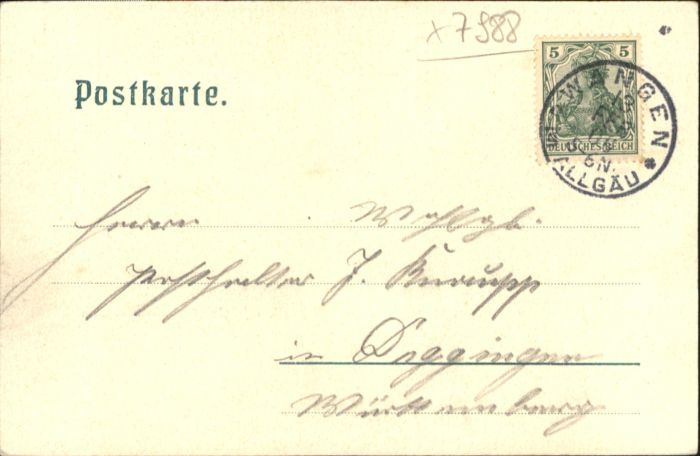 x7588
5 5
DEUTSCHES REICH
WANGEN
5-6N.
ALLGÄU
Postkarte.
Herrn Wohlgb.
Posthalter J. Knaupp
in Deggingen
Württemberg